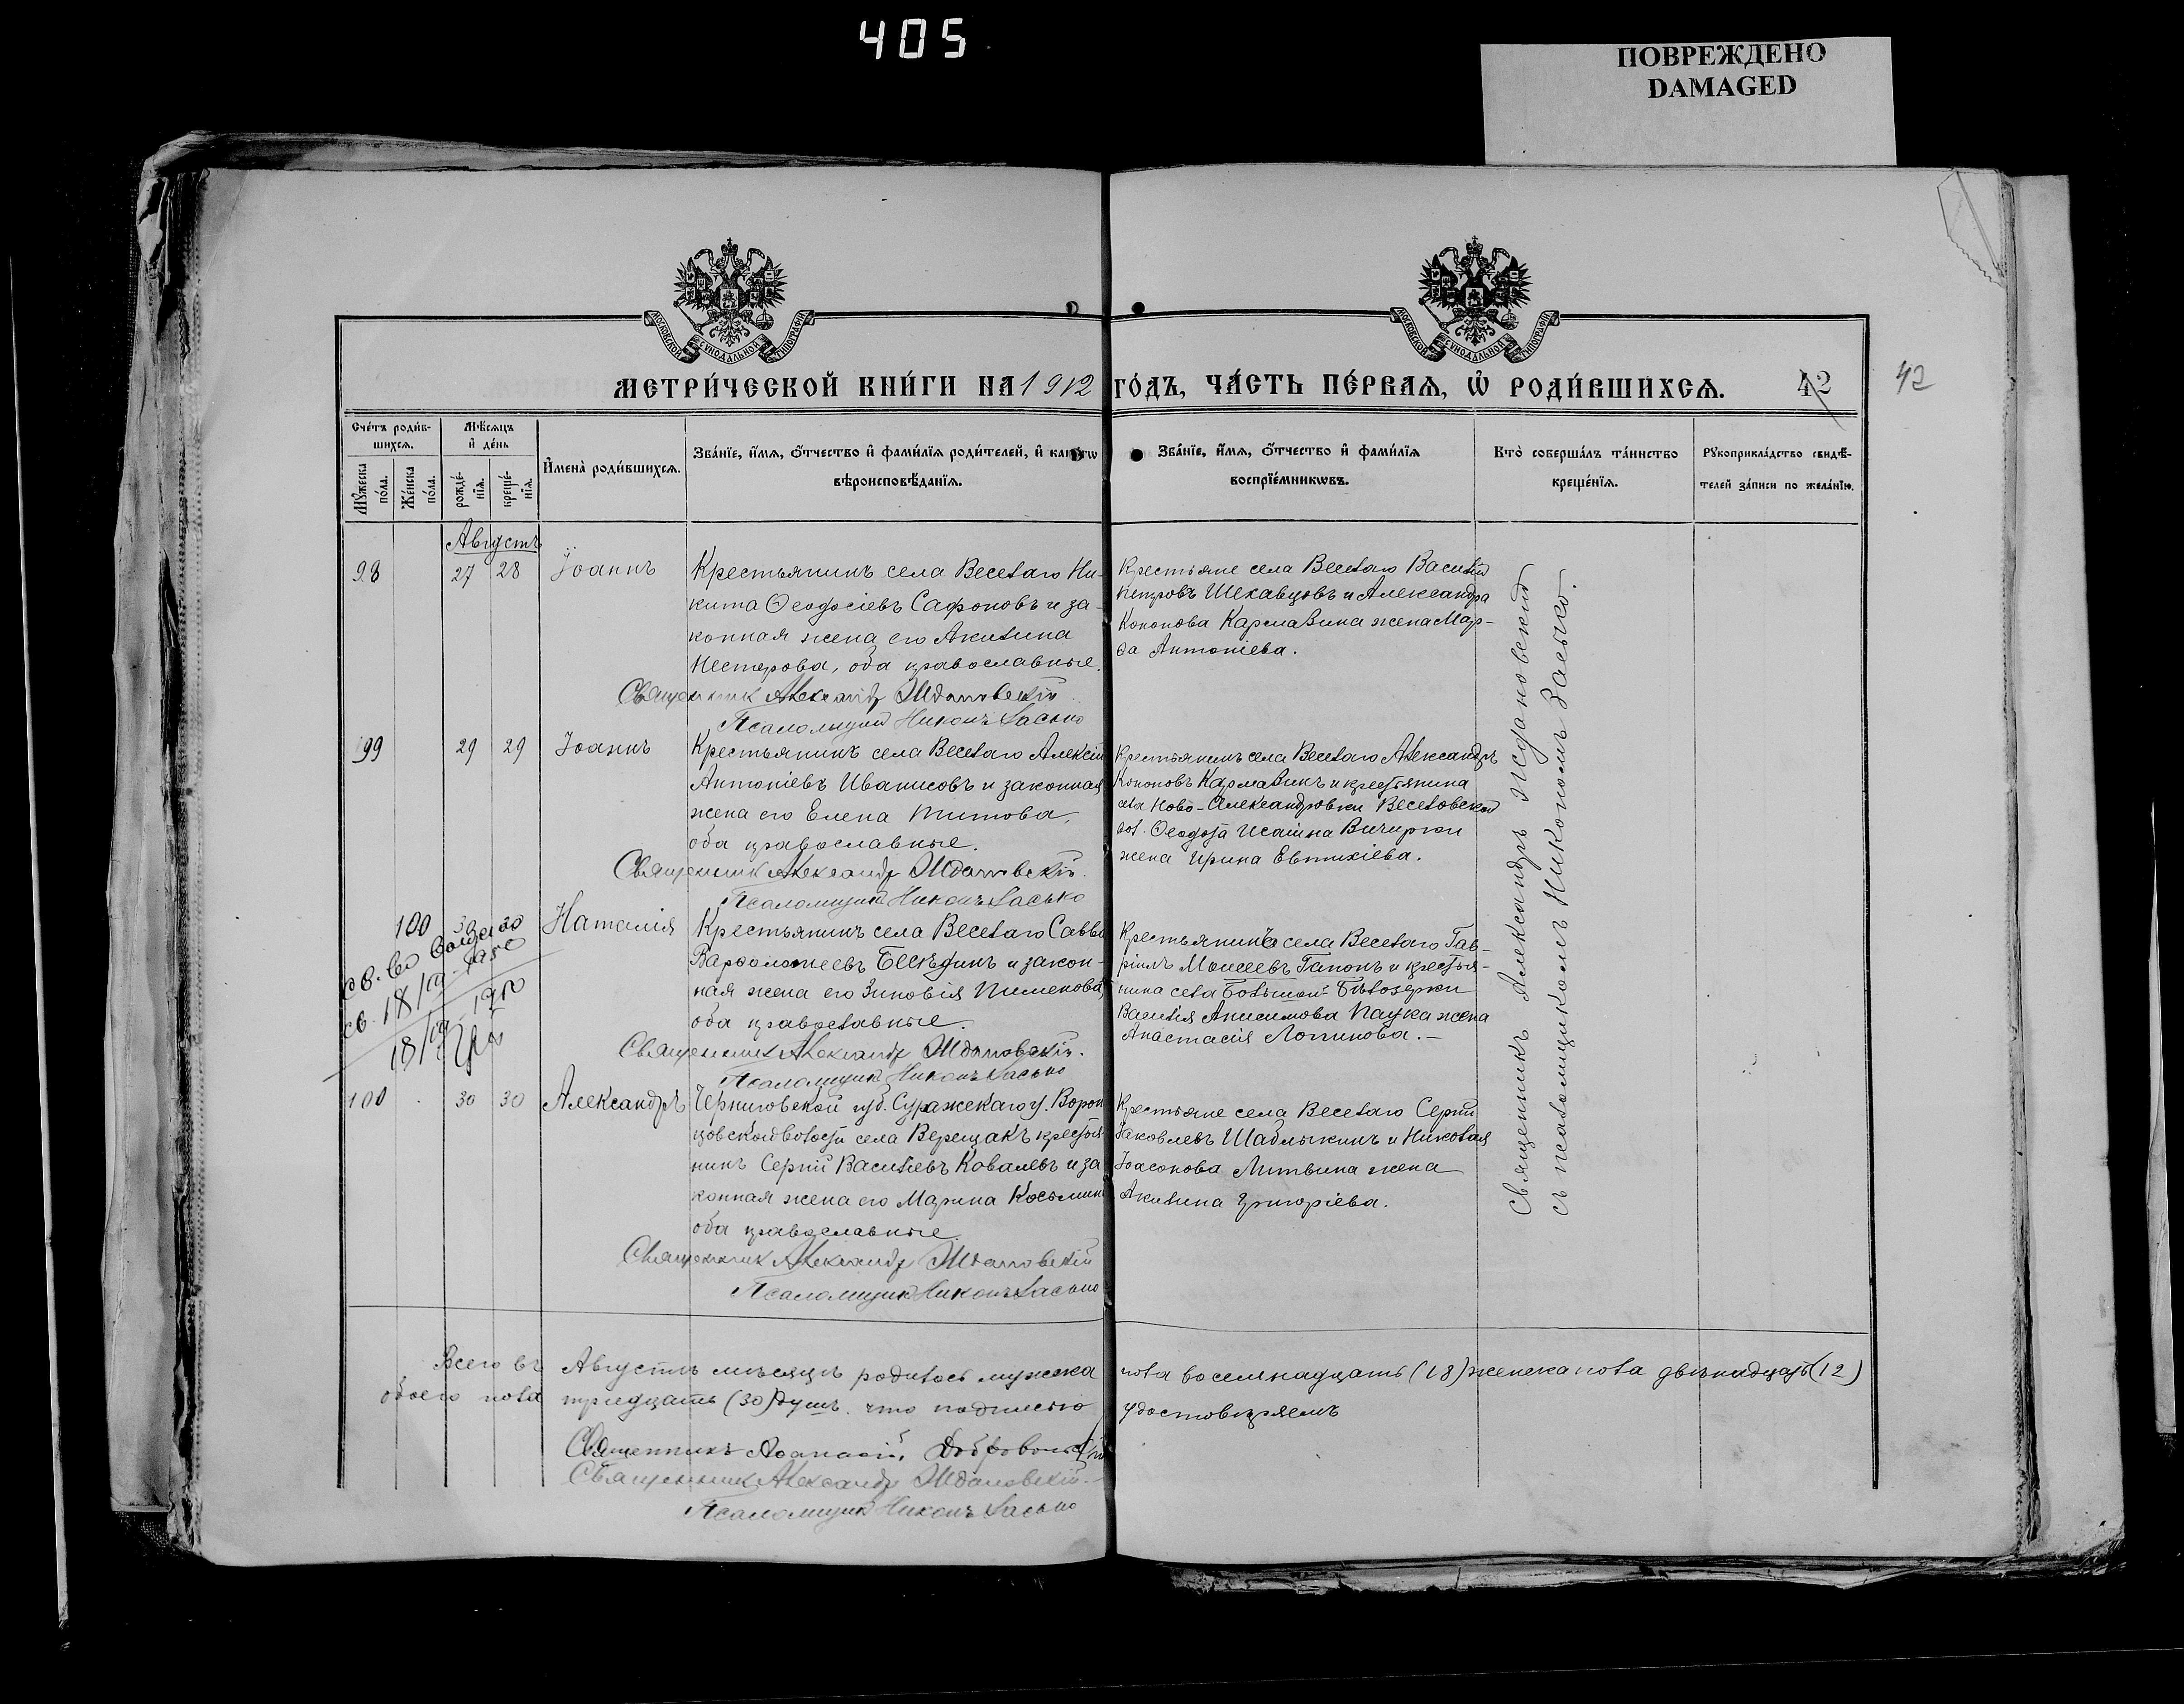 405
ПОВРЕЖДЕНО
DAMAGED
МОСКОВСКОЙ СУНОДАЛЬНОЙ ТИПОГРАФІИ
МОСКОВСКОЙ СУНОДАЛЬНОЙ ТИПОГРАФІИ
МЕТРИ́ЧЕСКОЙ КНИ́ГИ НА 1912 ГО́ДЪ, ЧА́СТЬ ПЕ́РВАѦ, Ѡ҆ РОДИ́ВШИХСѦ. 42
42
Счéтъ роди́в-
шихсѧ.
Мꙋ́жеска по́ла.
Же́нска по́ла.
Мѣ́сѧцъ
и҆ де́нь
рожде́-
нїѧ.
креще́-
нїѧ.
И҆мена̀ роди́вшихсѧ.
Зва́нїе, и҆́мѧ, ѻ҆́тчество и҆ фами́лїѧ роди́телей, и҆ как
вѣроисповѣ́данїѧ.
Зва́нїе, и҆́мѧ, ѻ҆́тчество и҆ фами́лїѧ
воспрїе́мникѡвъ.
Кто̀ соверша́лъ та́инство
креще́нїѧ.
Рꙋкоприкла́дство свидѣ́-
телей за́писи по жела́нїю.
Августъ
98 27 28 Іоаннъ
Крестьянинъ села Веселаго Ни-
кита Ѳеодосіевъ Сафоновъ и за-
конная жена его Акилина
Нестерова, оба православные.
Священник Александр Ждановскій
Псаломщик Никонъ Засько
Крестьяне села Веселаго Василій
Петровъ Шекавцовъ и Александра
Кононова Кармавина жена Мар-
ѳа Антоніева.
99 29 29 Іоаннъ
Крестьянинъ села Веселаго Алексій
Антоніевъ Иванисовъ и законная
жена его Елена Титова,
оба православные.
Священник Александр Ждановскій
Псаломщик Никонъ Засько
Крестьянинъ села Веселаго Александръ
Кононовъ Кармавинъ и крестьянина
села Ново-Александровки Веселовской
вол. Ѳеодота Исаіина
жена Ирина Евтихіева.
100 30 30 Наталія
Крестьянинъ села Веселаго Савва
Варѳоломеевъ Бесѣдинъ и закон-
ная жена его Зиновія Пименова,
оба православные.
Священник Александр Ждановскій.
Псаломщик Никонъ Засько
Крестьянинъ села Веселаго Гав-
ріилъ Моисеевъ Гапонъ и крестья-
нина села Большой-Бѣлозерки
Василія Анисимова Паука жена
Анастасія Логинова.—
св. 18/
18/
100 30 30 Александръ
Черниговской губ. Суражскаго у. Ворон
цовской волости села Верещакъ крестья
нинъ Сергій Васильевъ Ковалевъ и за
конная жена его Марина Косьмин
оба православные.
Священник Александр Ждановскій
Псаломщик Никонъ Засько
Крестьяне села Веселаго Сергій
Іаковлевъ Шаблыкинъ и Николая
Іоасонова Литвина жена
Акилина Григоріева.
Священникъ Александръ Ждановскій
съ псаломщикомъ Никономъ Засько.
Всего въ Августѣ мѣсяцѣ родилось мужска пола восемнадцать (18) женска пола двѣнадцать (12)
обоего пола тридцать (30) душъ. что подписью удостовѣряемъ
Священникъ Аѳанасій Добровольскій
Священник Александр Ждановскій
Псаломщик Никонъ Засько